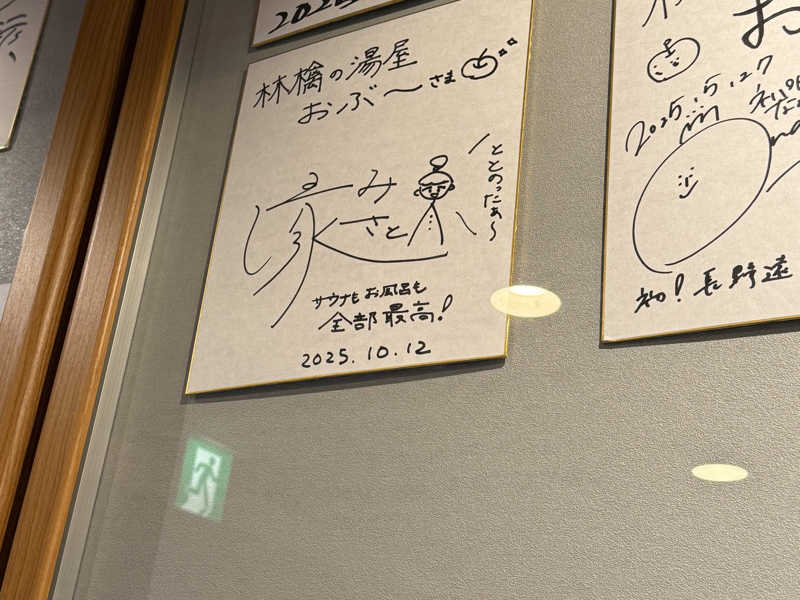 林檎の湯屋
おぶ～さま
ととのったぁ～
みさと
サウナもお風呂も
全部最高！
2025.10.12
2025.5.27
初！長野遠